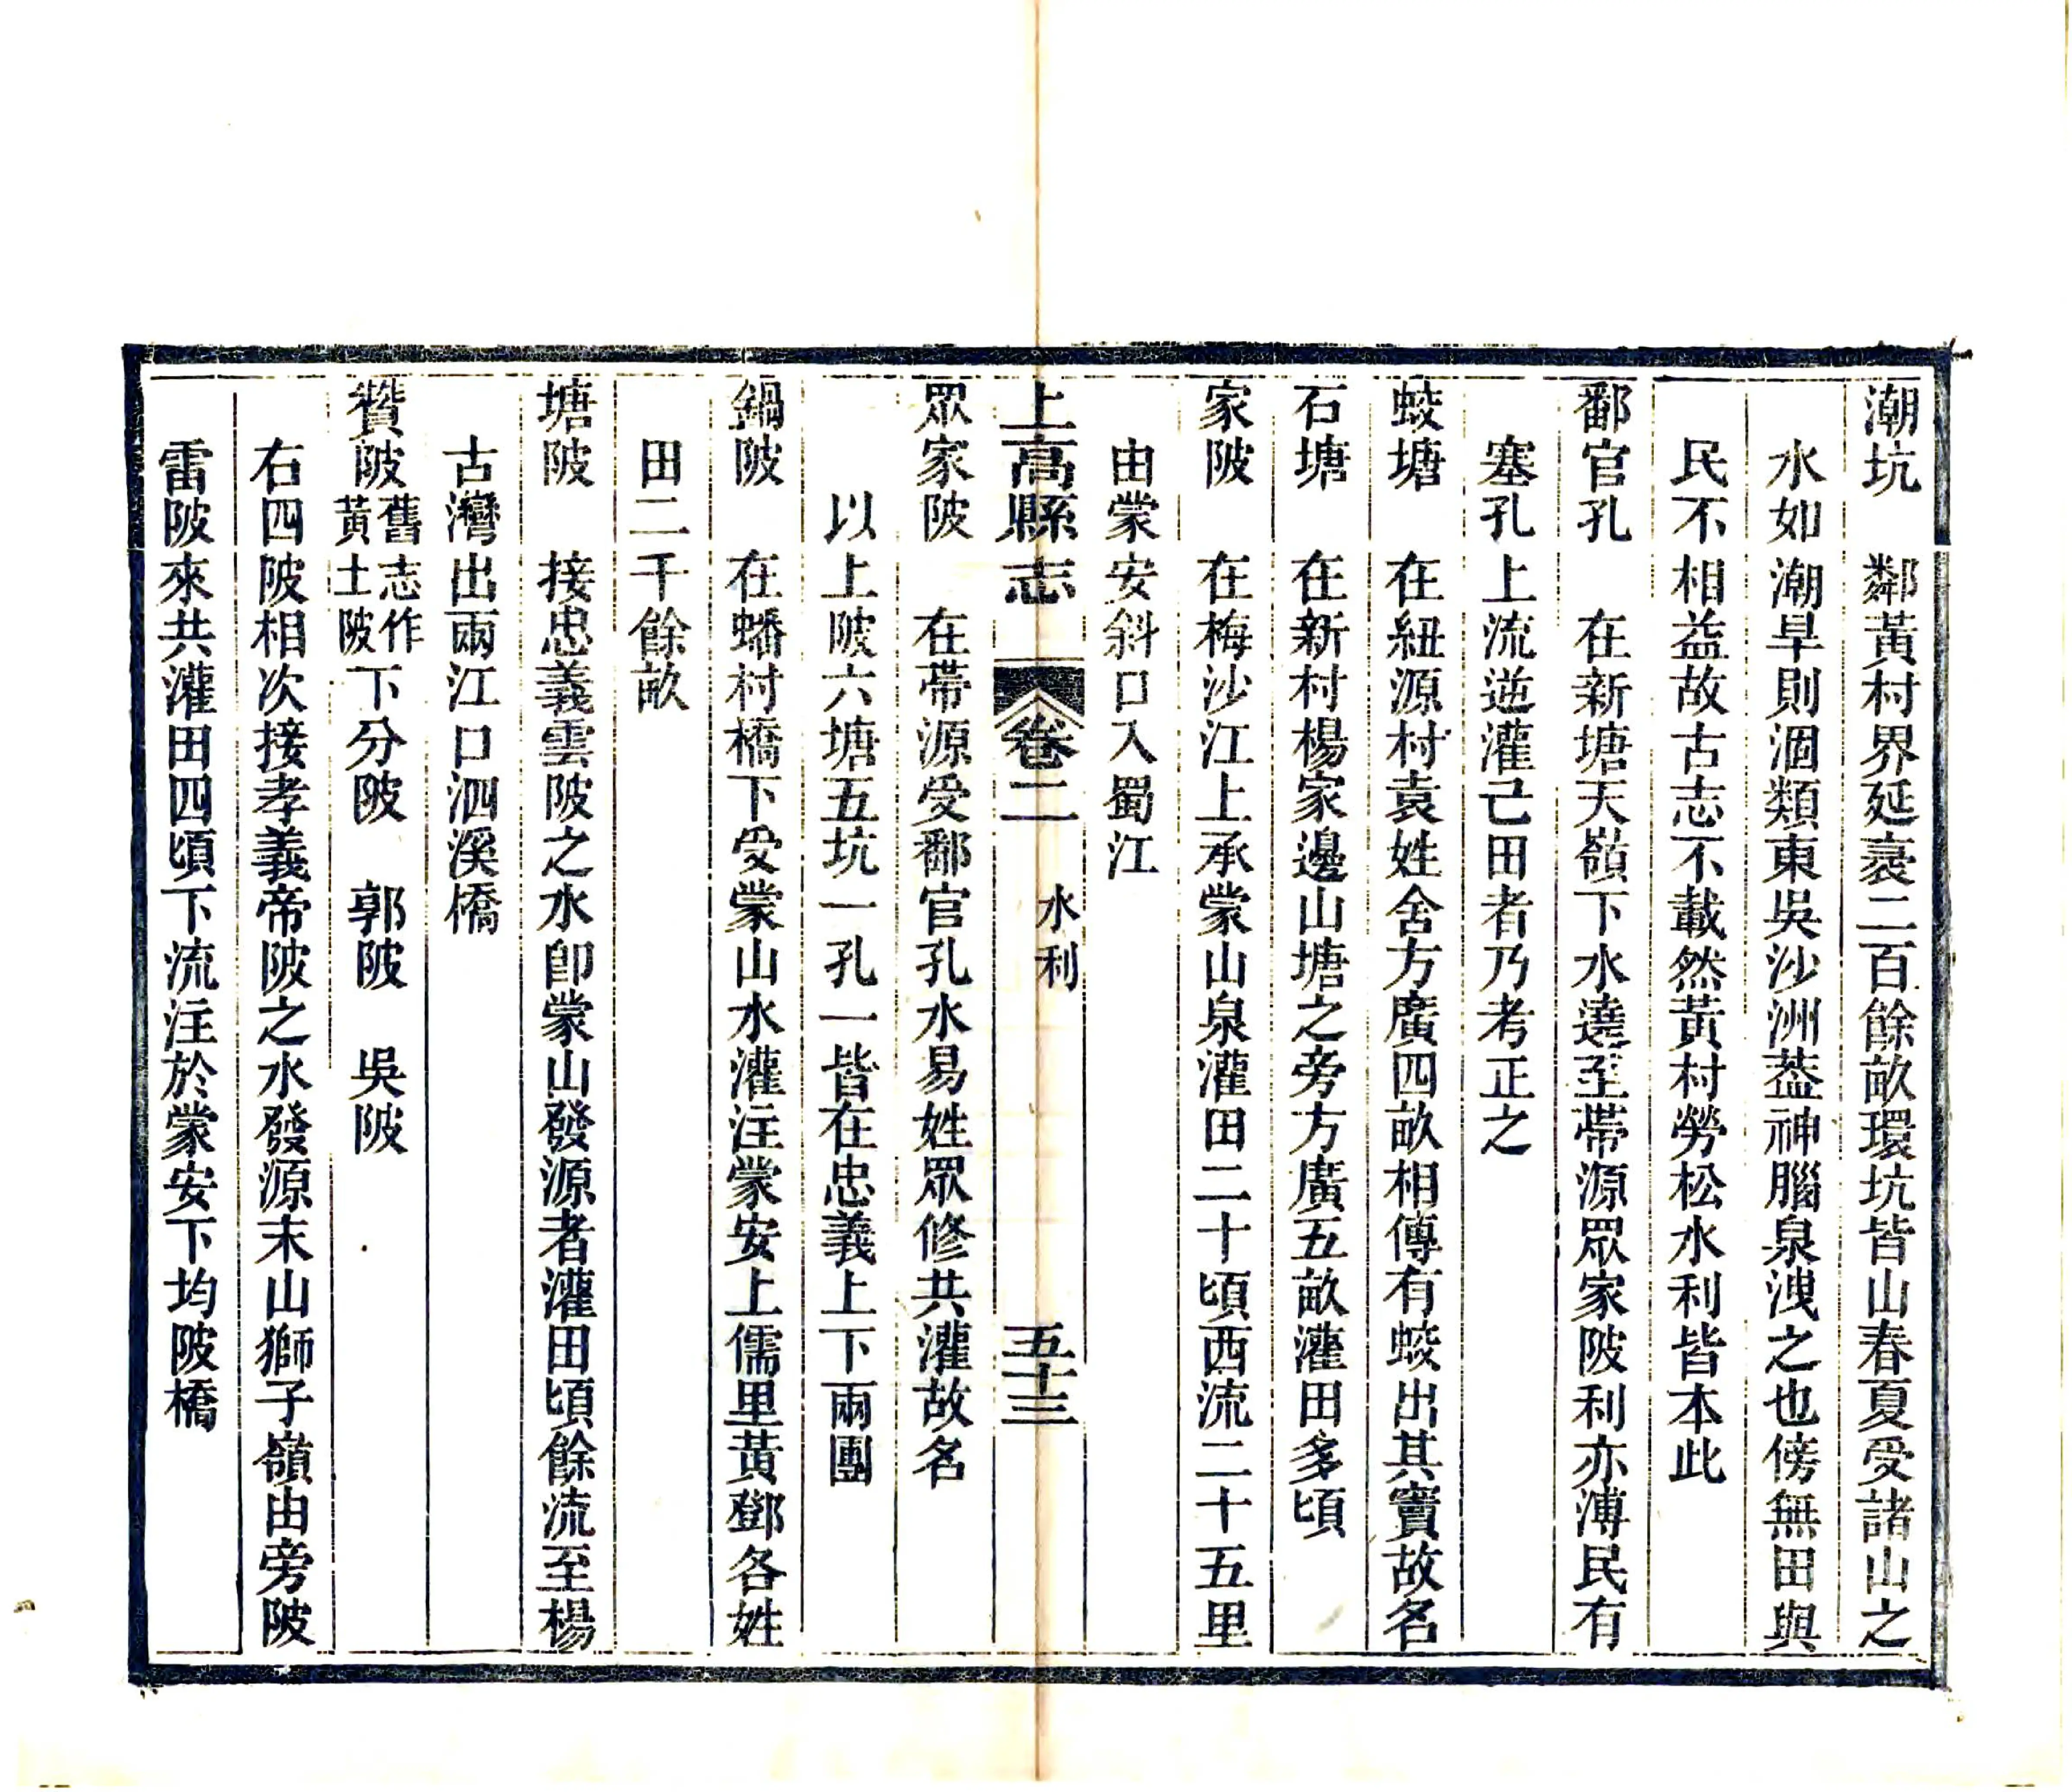 潮坑　鄰黃村界延袤二百餘畝環坑皆山春夏受諸山之
水如潮旱則涸類東吳沙洲葢神腦泉洩之也傍無田與
民不相益故古志不載然黃村勞松水利皆本此
鄱官孔　在新塘天嶺下水遶至帶源眾家陂利亦溥民有
塞孔上流逆灌己田者乃考正之
蛟塘　在紐源村袁姓舍方廣四畝相傳有蛟出其竇故名
石塘　在新村楊家邊山塘之旁方廣五畝灌田多頃
家陂　在梅沙江上承蒙山泉灌田二十頃西流二十五里
由蒙安斜口入蜀江
上高縣志　卷二　水利　五十三
眾家陂　在帶源受鄱官孔水易姓眾修共灌故名
以上陂六塘五坑一孔一皆在忠義上下兩團
鍋陂　在蟠村橋下受蒙山水灌注蒙安上儒里黃鄧各姓
田二千餘畝
塘陂　接忠義雲陂之水卽蒙山發源者灌田頃餘流至楊
古灣出兩江口泗溪橋
贊陂舊志作黃土陂下分陂　郭陂　吳陂
右四陂相次接孝義帝陂之水發源末山獅子嶺由旁陂
雷陂來共灌田四頃下流注於蒙安下均陂橋